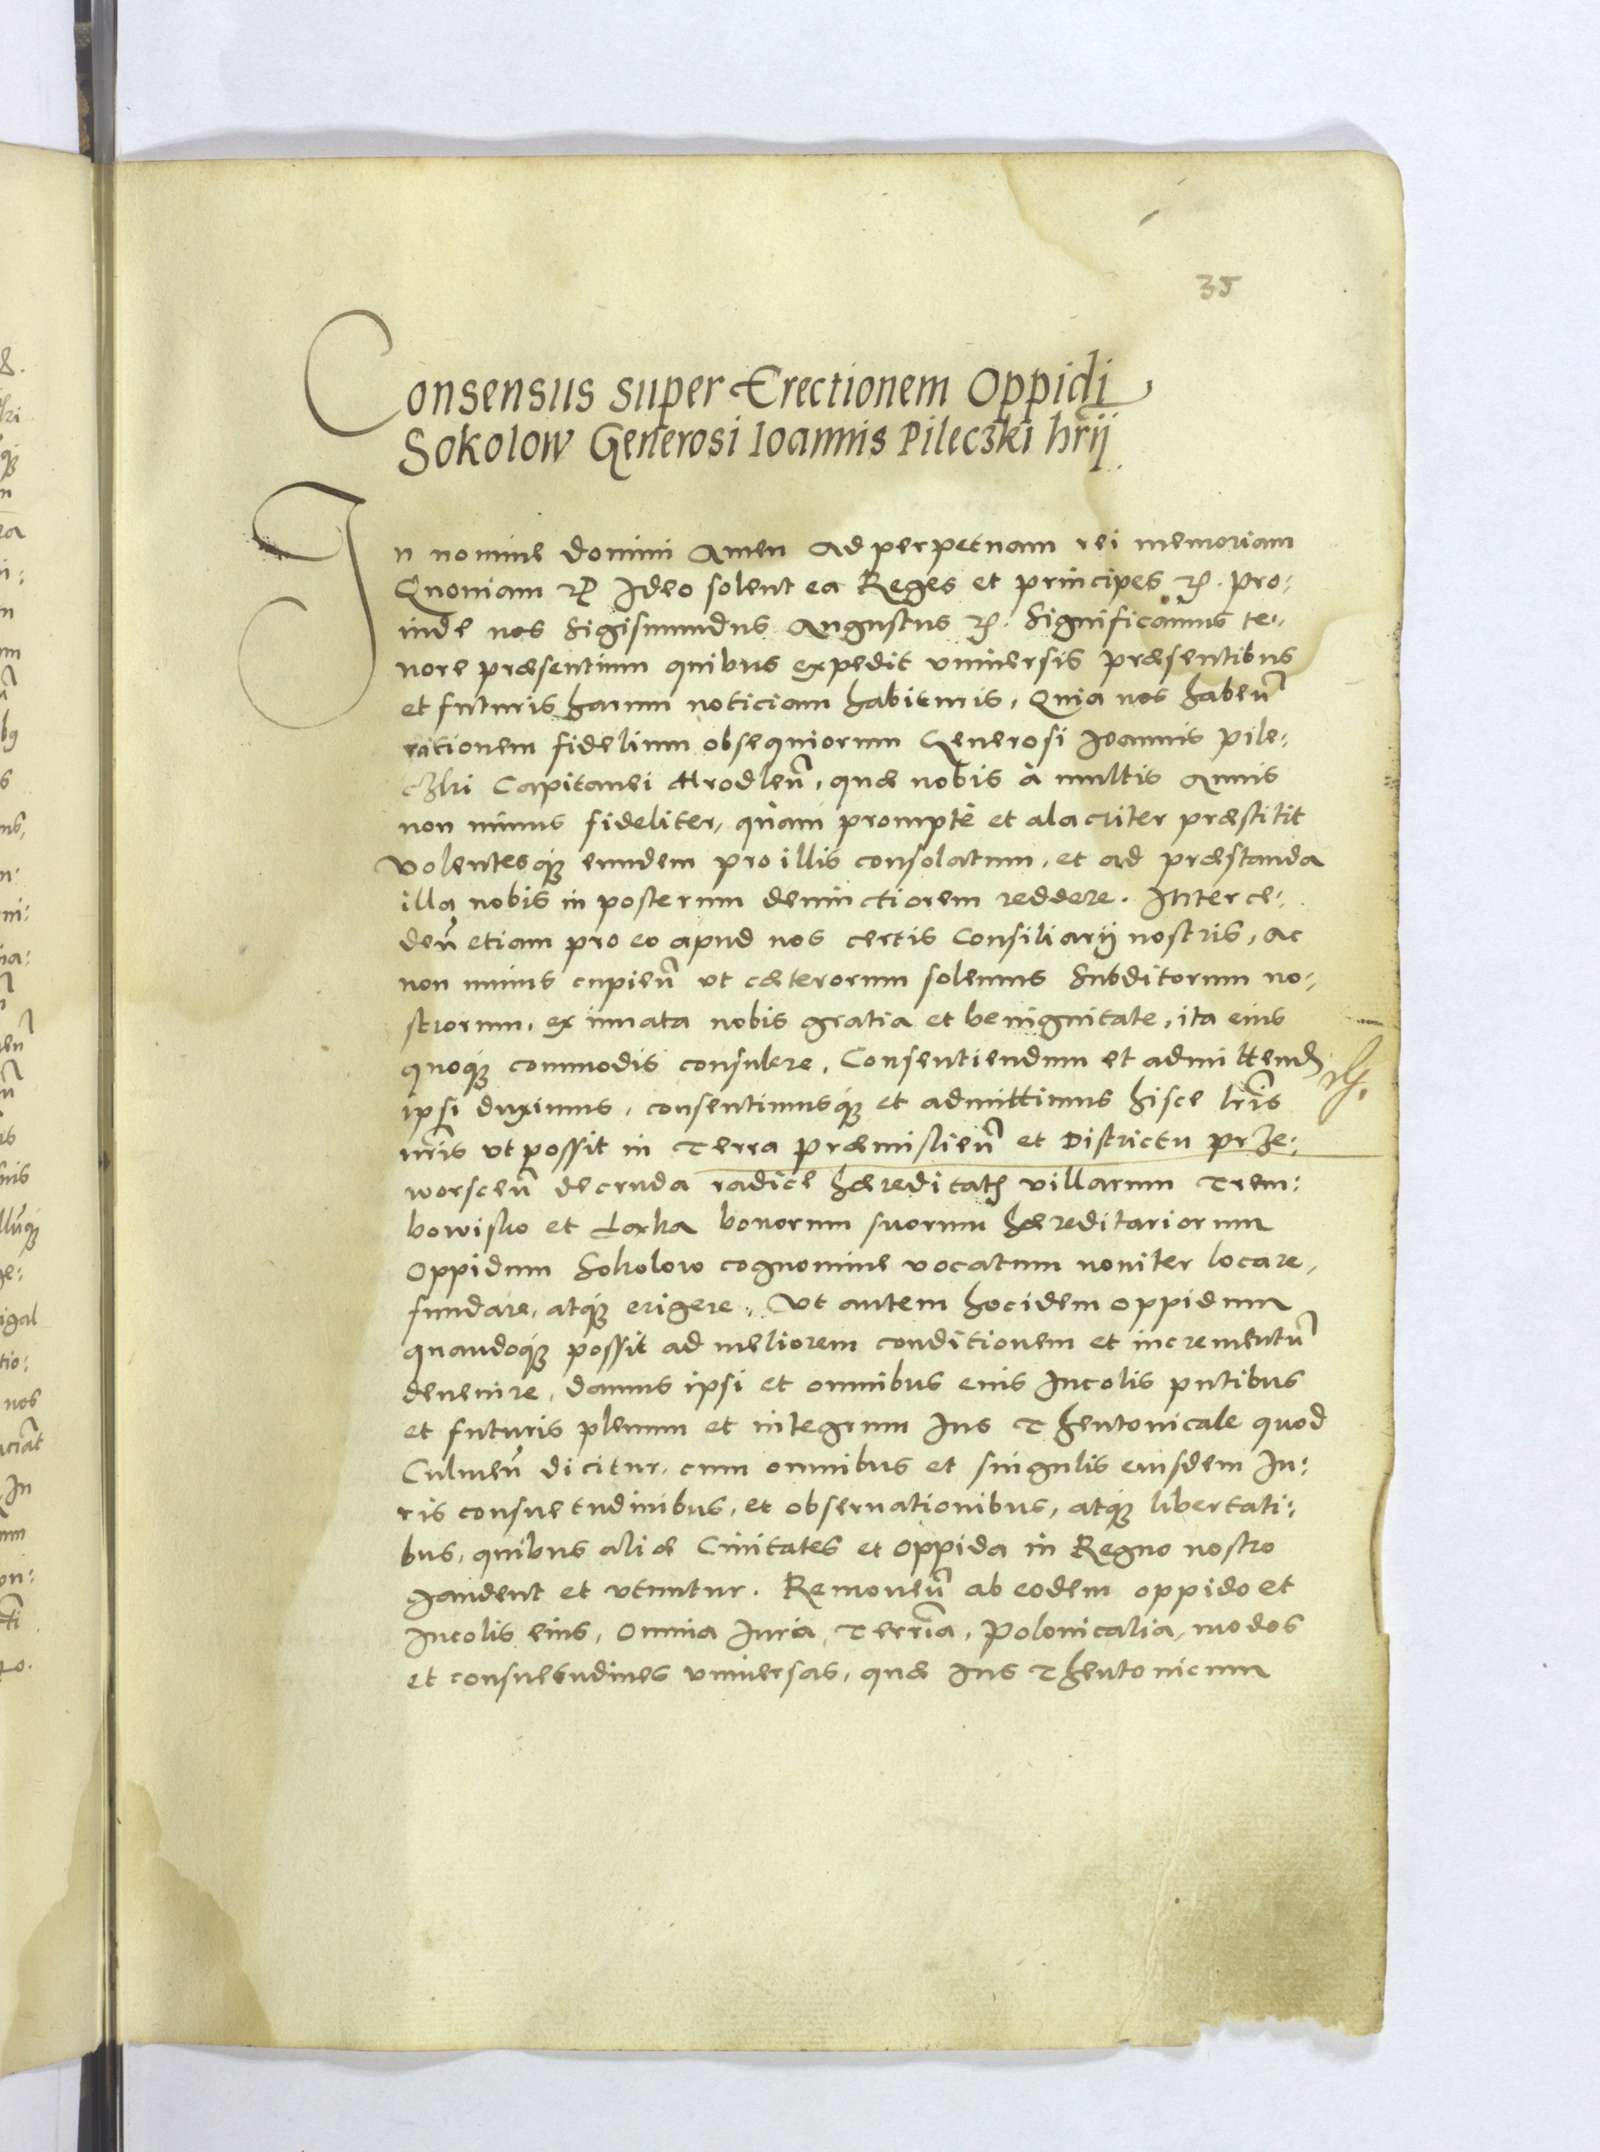 35
Consensus super Erectionem Oppidi
Sokolow Generosi Ioannis Pileczki hrij
In nomine domini Amen Ad perpetuam rei memoriam
Quoniam etc Ideo solent ea Reges et principes etc. Pro:
inde nos Sigismundus Augustus etc. Significamus te:
nore præsentium quibus expedit vniuersis præsentibus
et futuris harum noticiam habituris, Quia nos habeñ
rationem fidelium obsequiorum Generosi Joannis Pile:
czki Capitanei Hrodleñ, quæ nobis à multis Annis
non minus fideliter, quàm promptè et alacriter præstitit
volentesque eundem pro illis consolatum, et ad præstanda
illa nobis in posterum deuinctiorem reddere. Interce:
deñ etiam pro eo apud nos certis Consiliarij nostris, ac
non minus cupieñ vt cæterorum solemus Subditorum no:
strorum, ex innata nobis gratia et benignitate, ita eius
quoque commodis consulere, Consentiendum et admittend
ipsi duximus, consentimusque et admittimus hisce lris
nris vt possit in Terra Præmislieñ et Districtu Prze:
worsceñ de cruda radice hæreditat villarum Trem:
bowisko et Łaxka bonorum suorum hæreditariorum
Oppidum Sokolow cognomine vocatum nouiter locare,
fundare, atque erigere. Vt autem hocidem oppidum
quandoque possit ad meliorem conditionem et incrementũ
deuenire, damus ipsi et omnibus eius Incolis pntibus
et futuris plenum et integrum Ius Theutonicale quod
Culmeñ dicitur, cum omnibus et singulis eiusdem Iu:
ris consuetudinibus, et obseruationibus, atque libertati:
bus, quibus aliæ Ciuitates et Oppida in Regno nostro
gaudent et vtuntur. Remoueñ ab eodem oppido et
Incolis eius, omnia Iura Terria, Polonicalia, modos
et consuetudines vniuersas, quæ Ius Theutonicum